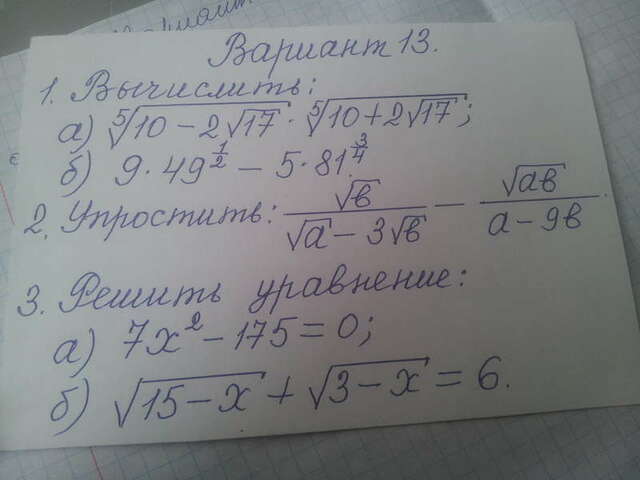 Вариант 13.
1. Вычислить:
а) ⁵√(10 - 2√17) · ⁵√(10 + 2√17);
б) 9 · 49^(1/2) - 5 · 81^(3/4)
2. Упростить: √в/(√а - 3√в) - √ав/(а - 9в).
3. Решить уравнение:
а) 7x² - 175 = 0;
б) √(15 - x) + √(3 - x) = 6.